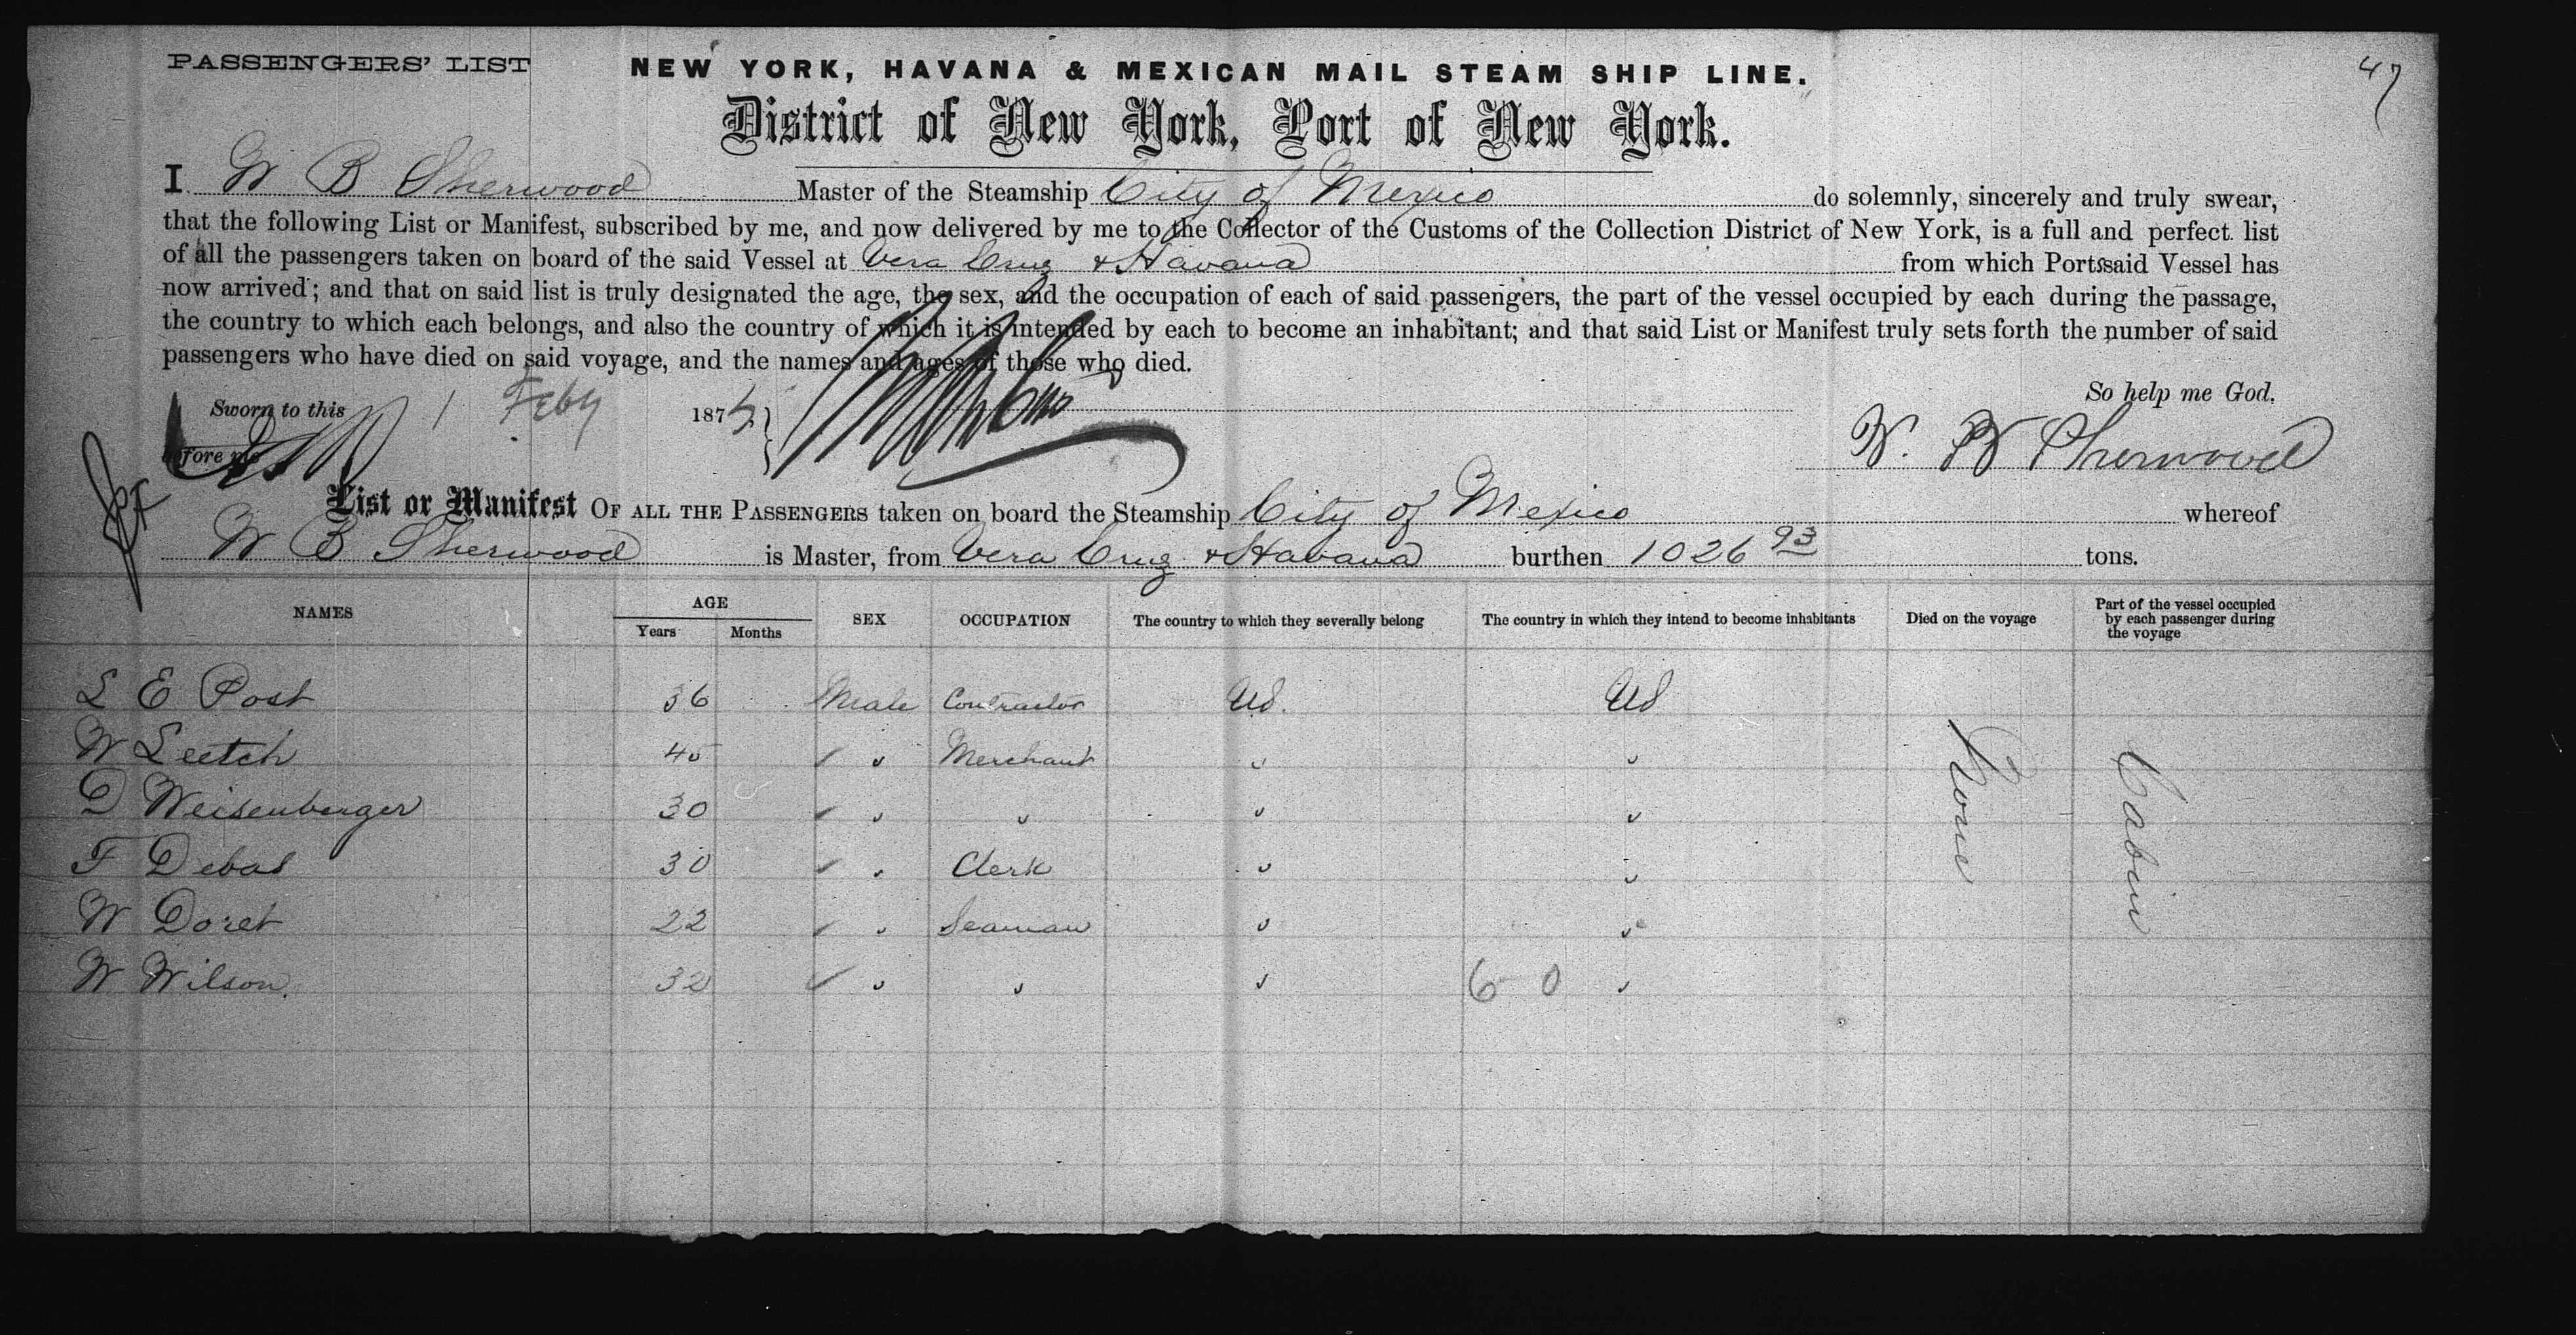 PASSENGERS' LIST NEW YORK, HAVANA & MEXICAN MAIL STEAM SHIP LINE. 47
District of New York, Port of New York.
I W B Sherwood Master of the Steamship City of Mexico do solemnly, sincerely and truly swear,
that the following List or Manifest, subscribed by me, and now delivered by me to the Collector of the Customs of the Collection District of New York, is a full and perfect list
of all the passengers taken on board of the said Vessel at Vera Cruz & Havana from which Ports said Vessel has
now arrived; and that on said list is truly designated the age, the sex, and the occupation of each of said passengers, the part of the vessel occupied by each during the passage,
the country to which each belongs, and also the country of which it is intended by each to become an inhabitant; and that said List or Manifest truly sets forth the number of said
passengers who have died on said voyage, and the names and ages of those who died.
So help me God.
Sworn to this 1 Feby 1875
before me W. B Sherwood
List or Manifest OF ALL THE PASSENGERS taken on board the Steamship City of Mexico whereof
W B Sherwood is Master, from Vera Cruz & Havana burthen 1026 93 tons.
NAMES AGE Years Months SEX OCCUPATION The country to which they severally belong The country in which they intend to become inhabitants Died on the voyage Part of the vessel occupied by each passenger during the voyage
L E Post 36 Male Contractor US. US
W Leetch 45 " Merchant " "
D Weisenberger 30 " " " "
F Debas 30 " Clerk " "
W Doret 22 " Seaman " "
W Wilson. 32 " " " 6 0 "
None
Cabin